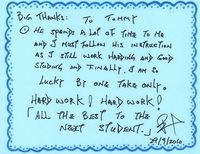 BIG THANKS: TO TOMMY
① HE SPENDS A LOT OF TIME TO ME
AND I MUST FOLLOW HIS INSTRUCTION
AS I STILL WORK HARDING AND GOOD
STUDING AND FINALLY. I AM SO
LUCKY BY ONE TAKE ONLY.
HARD WORK! HARD WORK!
"ALL THE BEST TO THE
NEXT STUDENT."
29/9/2010